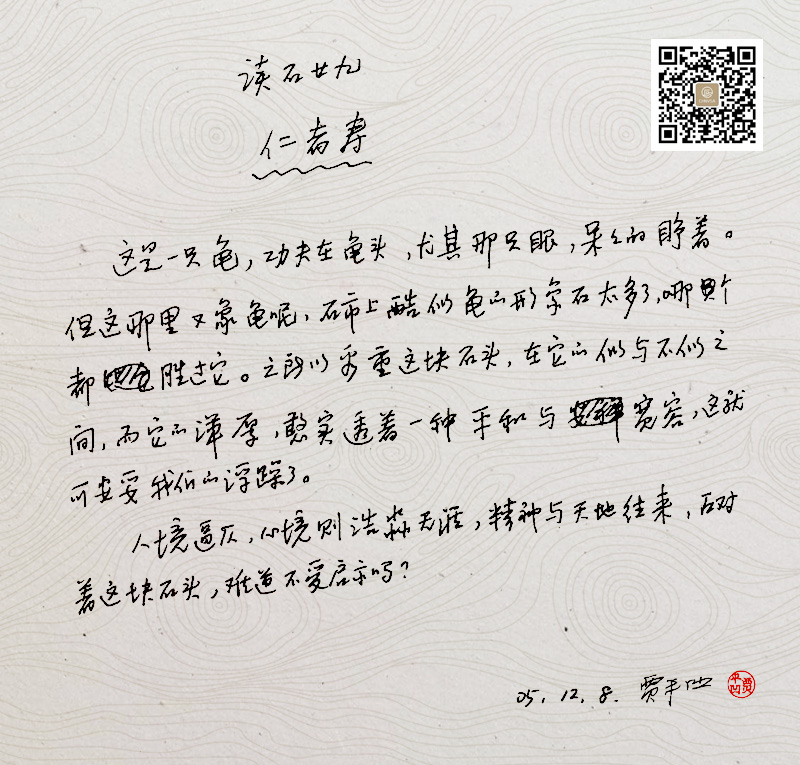 读石廿九
仁者寿
这是一只龟，功夫在龟头，尤其那只眼，呆呆的睁着。
但这那里又象龟呢，石市上酷似龟的形象石太多了，哪个
都胜过它。之所以看重这块石头，在它的似与不似之
间，而它的浑厚，憨实透着一种平和与宽容，这就
可安妥我们的浮躁了。
人境逼仄，心境则浩淼无涯，精神与天地往来，面对
着这块石头，难道不受启示吗？
05.12.8. 贾平凹
贾平凹